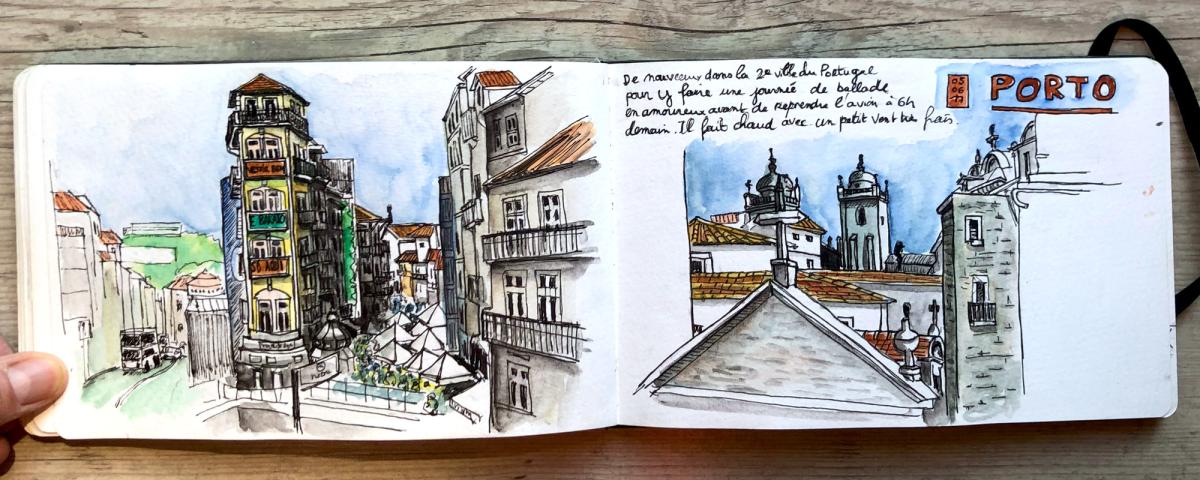 De nouveau dans la 2e ville du Portugal
pour y faire une journée de ballade
en amoureux avant de reprendre l'avion à 6h
demain. Il fait chaud avec un petit vent très frais.
05
06
17
PORTO
É BARATO
SÓ AQUI